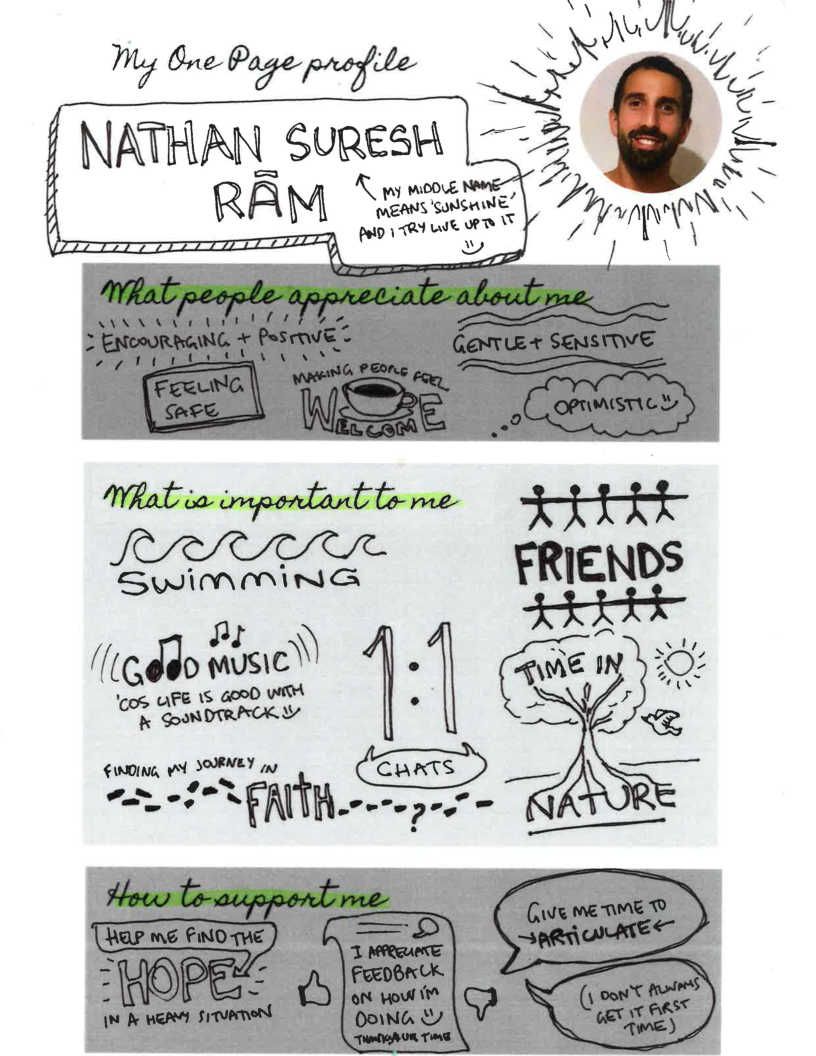 My One Page profile
NATHAN SURESH
RĀM
MY MIDDLE NAME
MEANS 'SUNSHINE'
AND I TRY LIVE UP TO IT
What people appreciate about me
ENCOURAGING + POSITIVE
GENTLE + SENSITIVE
FEELING
SAFE
MAKING PEOPLE FEEL
WELCOME
OPTIMISTIC
What is important to me
SWIMMING
FRIENDS
GOOD MUSIC
'COS LIFE IS GOOD WITH
A SOUNDTRACK
1:1
CHATS
TIME IN
NATURE
FINDING MY JOURNEY IN
FAITH
?
How to support me
HELP ME FIND THE
HOPE
IN A HEAVY SITUATION
I APPRECIATE
FEEDBACK
ON HOW I'M
DOING
GIVE ME TIME TO
ARTICULATE
(I DON'T ALWAYS
GET IT FIRST
TIME)